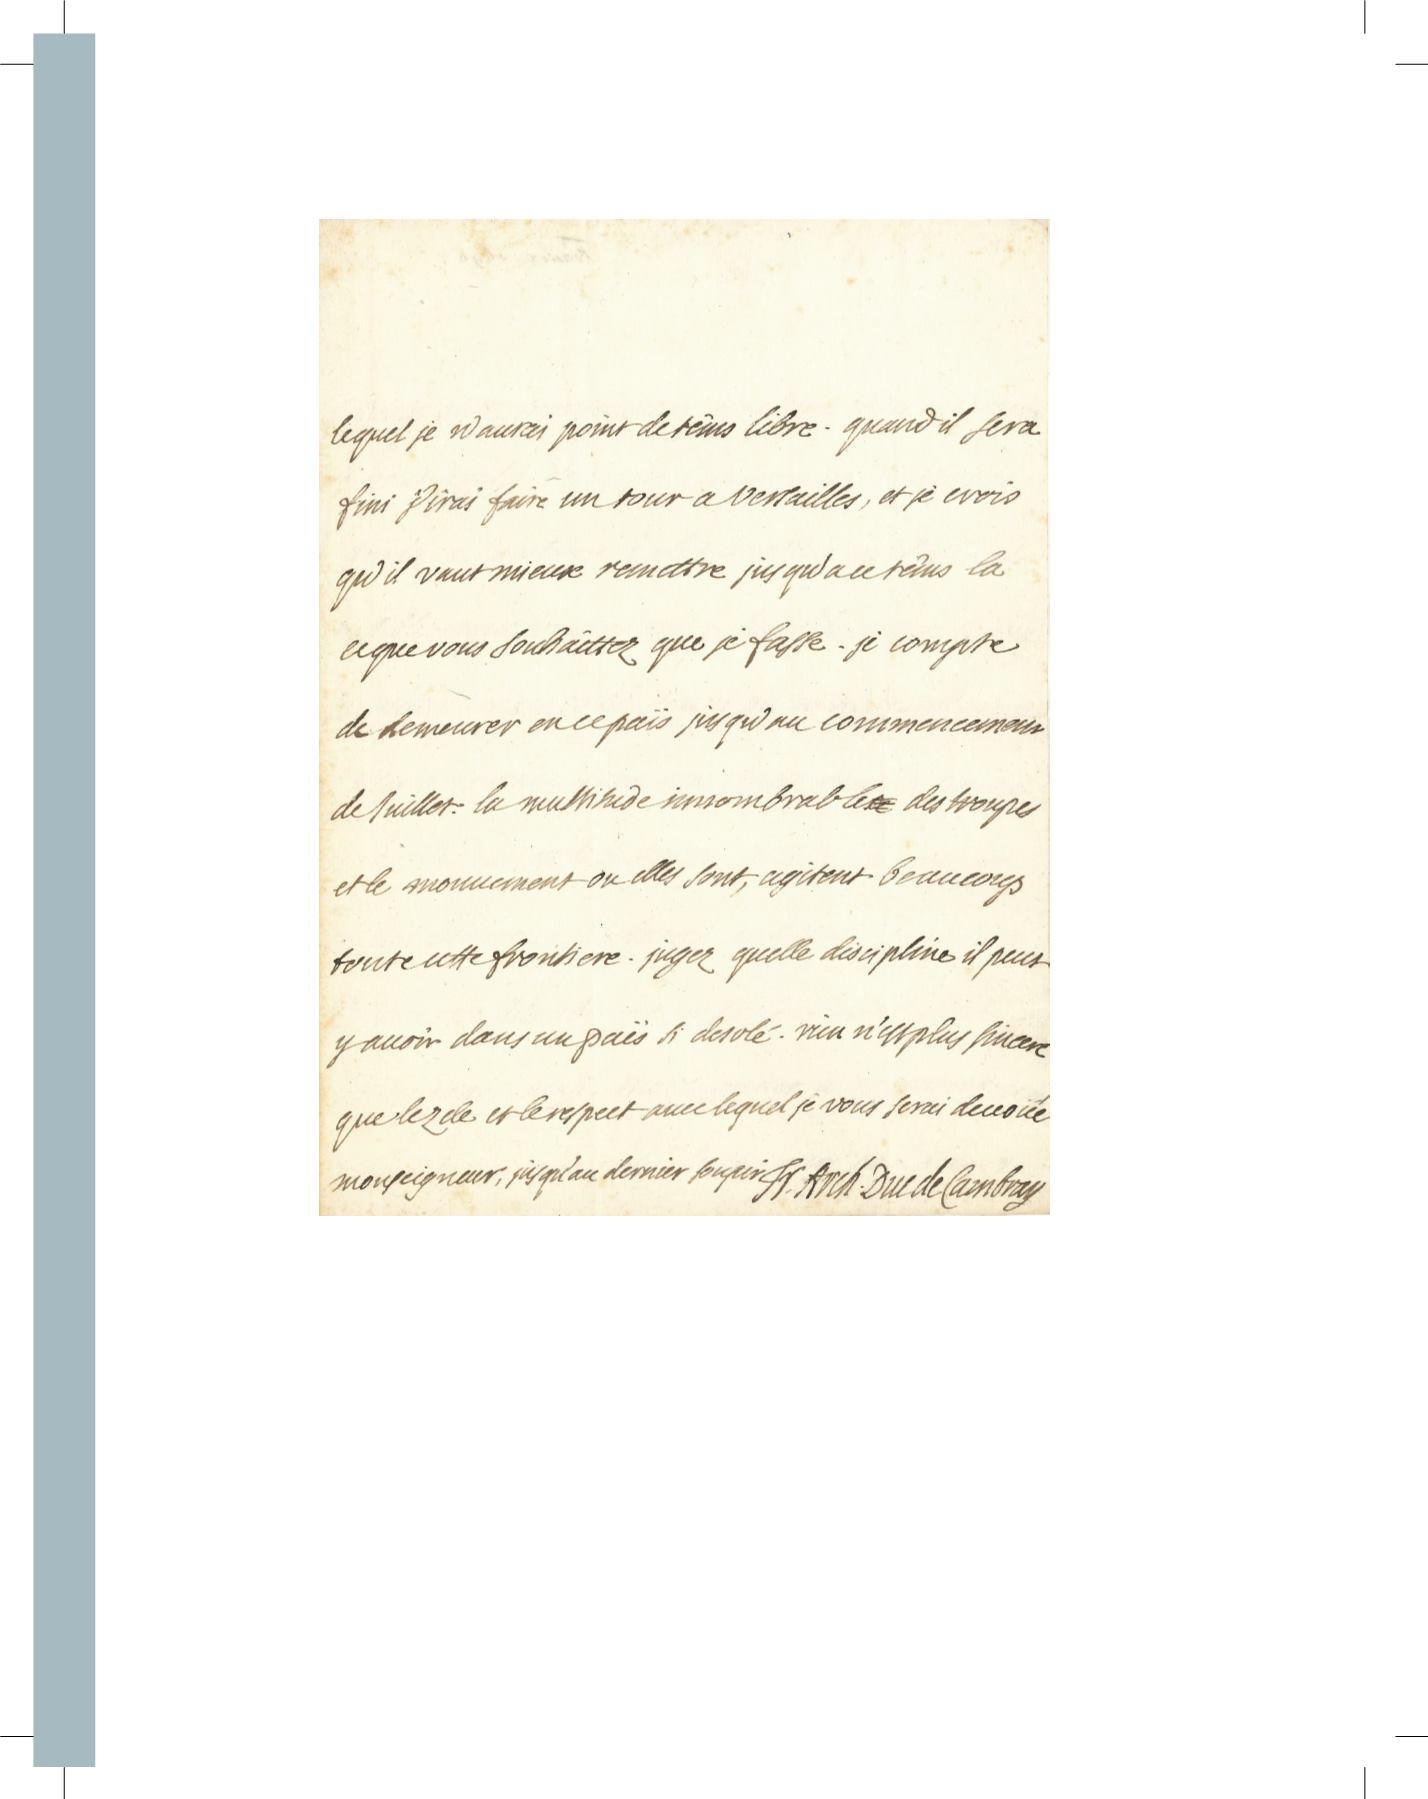 lequel je n'aurai point de têms libre. quand il sera
fini j'irai faire un tour a Versailles, et je crois
qu'il vaut mieux remettre jusqu'a ce têms la
ce que vous souhaittez que je fasse. je compte
de demeurer en ce païs jusqu'au commencement
de Juillet. la multitude innombrable des troupes
et le mouuement ou elles sont, agitent beaucoup
toute cette frontiere. jugez quelle discipline il peut
y auoir dans un païs si desolé. rien n'est plus sincere
que le zele et le respect auec lequel je vous serai deuoüé
monseigneur, jusqu'au dernier soupir Fr. Arch. Duc de Cambray